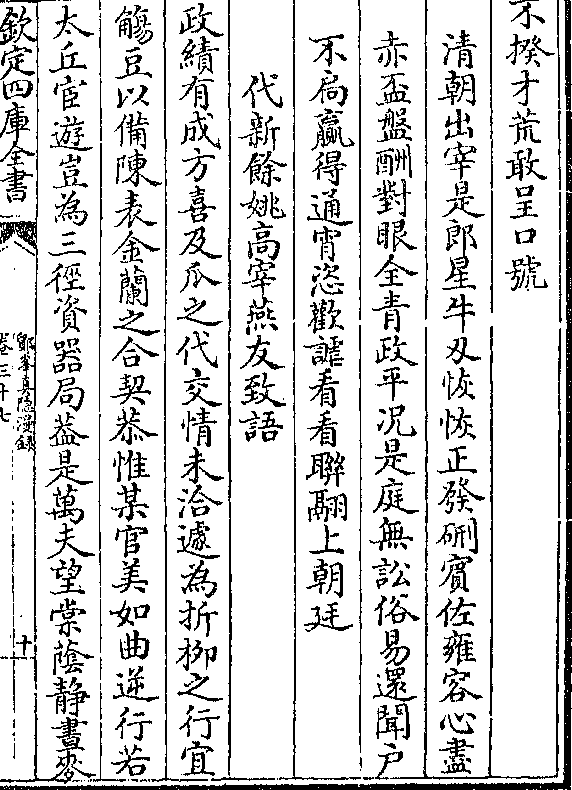 不揆才荒敢呈口號
清朝出宰是郎星牛刃恢恢正發硎賓佐雍容心盡
赤盃盤酬對眼全青政平况是庭無訟俗易還聞户
不扃贏得通宵恣歡謔看看聯翮上朝廷
代新餘姚高宰燕友致語
政績有成方喜及瓜之代交情未洽遽為折栁之行宜
觴豆以備陳表金蘭之合契恭惟某官美如曲逆行若
太丘宦遊豈為三徑資器局葢是萬夫望棠蔭静晝麥
欽定四庫全書
鄮峯真隱漫録
卷三十七
十